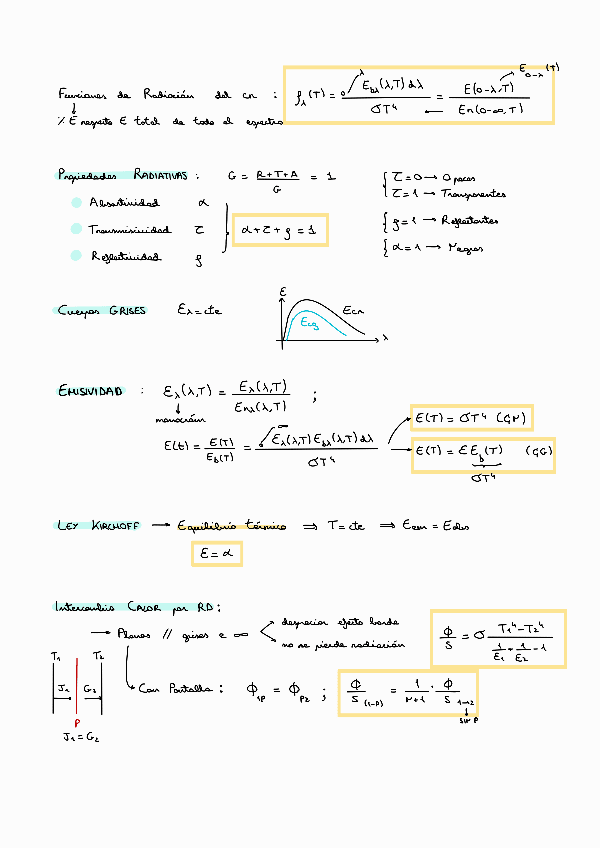 Funciones de Radiación del cn : f_λ(T) = ∫₀^λ E_bλ(λ,T) dλ / σT⁴ = E(0-λ,T) / En(0-∞,T) → E_0-λ(T)
% E respecto E total de todo el espectro
PROPIEDADES RADIATIVAS : G = R+T+A / G = 1
Absortividad α
Transmisividad τ
Reflectividad ρ
α + τ + ρ = 1
τ = 0 → Opacos
τ = 1 → Transparentes
ρ = 1 → Reflectantes
α = 1 → Negros
Cuerpos GRISES ε_λ = cte
E
Ecn
Ecg
λ
EMISIVIDAD : ε_λ(λ,T) = E_λ(λ,T) / E_nλ(λ,T) ;
monocrom
E(t) = E(T) / E_b(T) = ∫₀^∞ ε_λ(λ,T) E_bλ(λ,T) dλ / σT⁴
E(T) = σT⁴ (GN)
E(T) = ε E_b(T) (GG)
σT⁴
LEY KIRCHOFF → Equilibrio térmico ⇒ T = cte ⇒ Eem = Eabs
ε = α
Intercambio CALOR por RD :
→ Planos // grises e ∞
despreciar efecto borde
no se pierde radiación
Φ/S = σ (T₁⁴ - T₂⁴) / (1/ε₁ + 1/ε₂ - 1)
T₁ T₂
J₁ G₂
P
J₁ = G₂
Con Pantalla : Φ_1P = Φ_P2 ; Φ/S (1-P) = 1/(N+1) · Φ/S 1→2
sin P